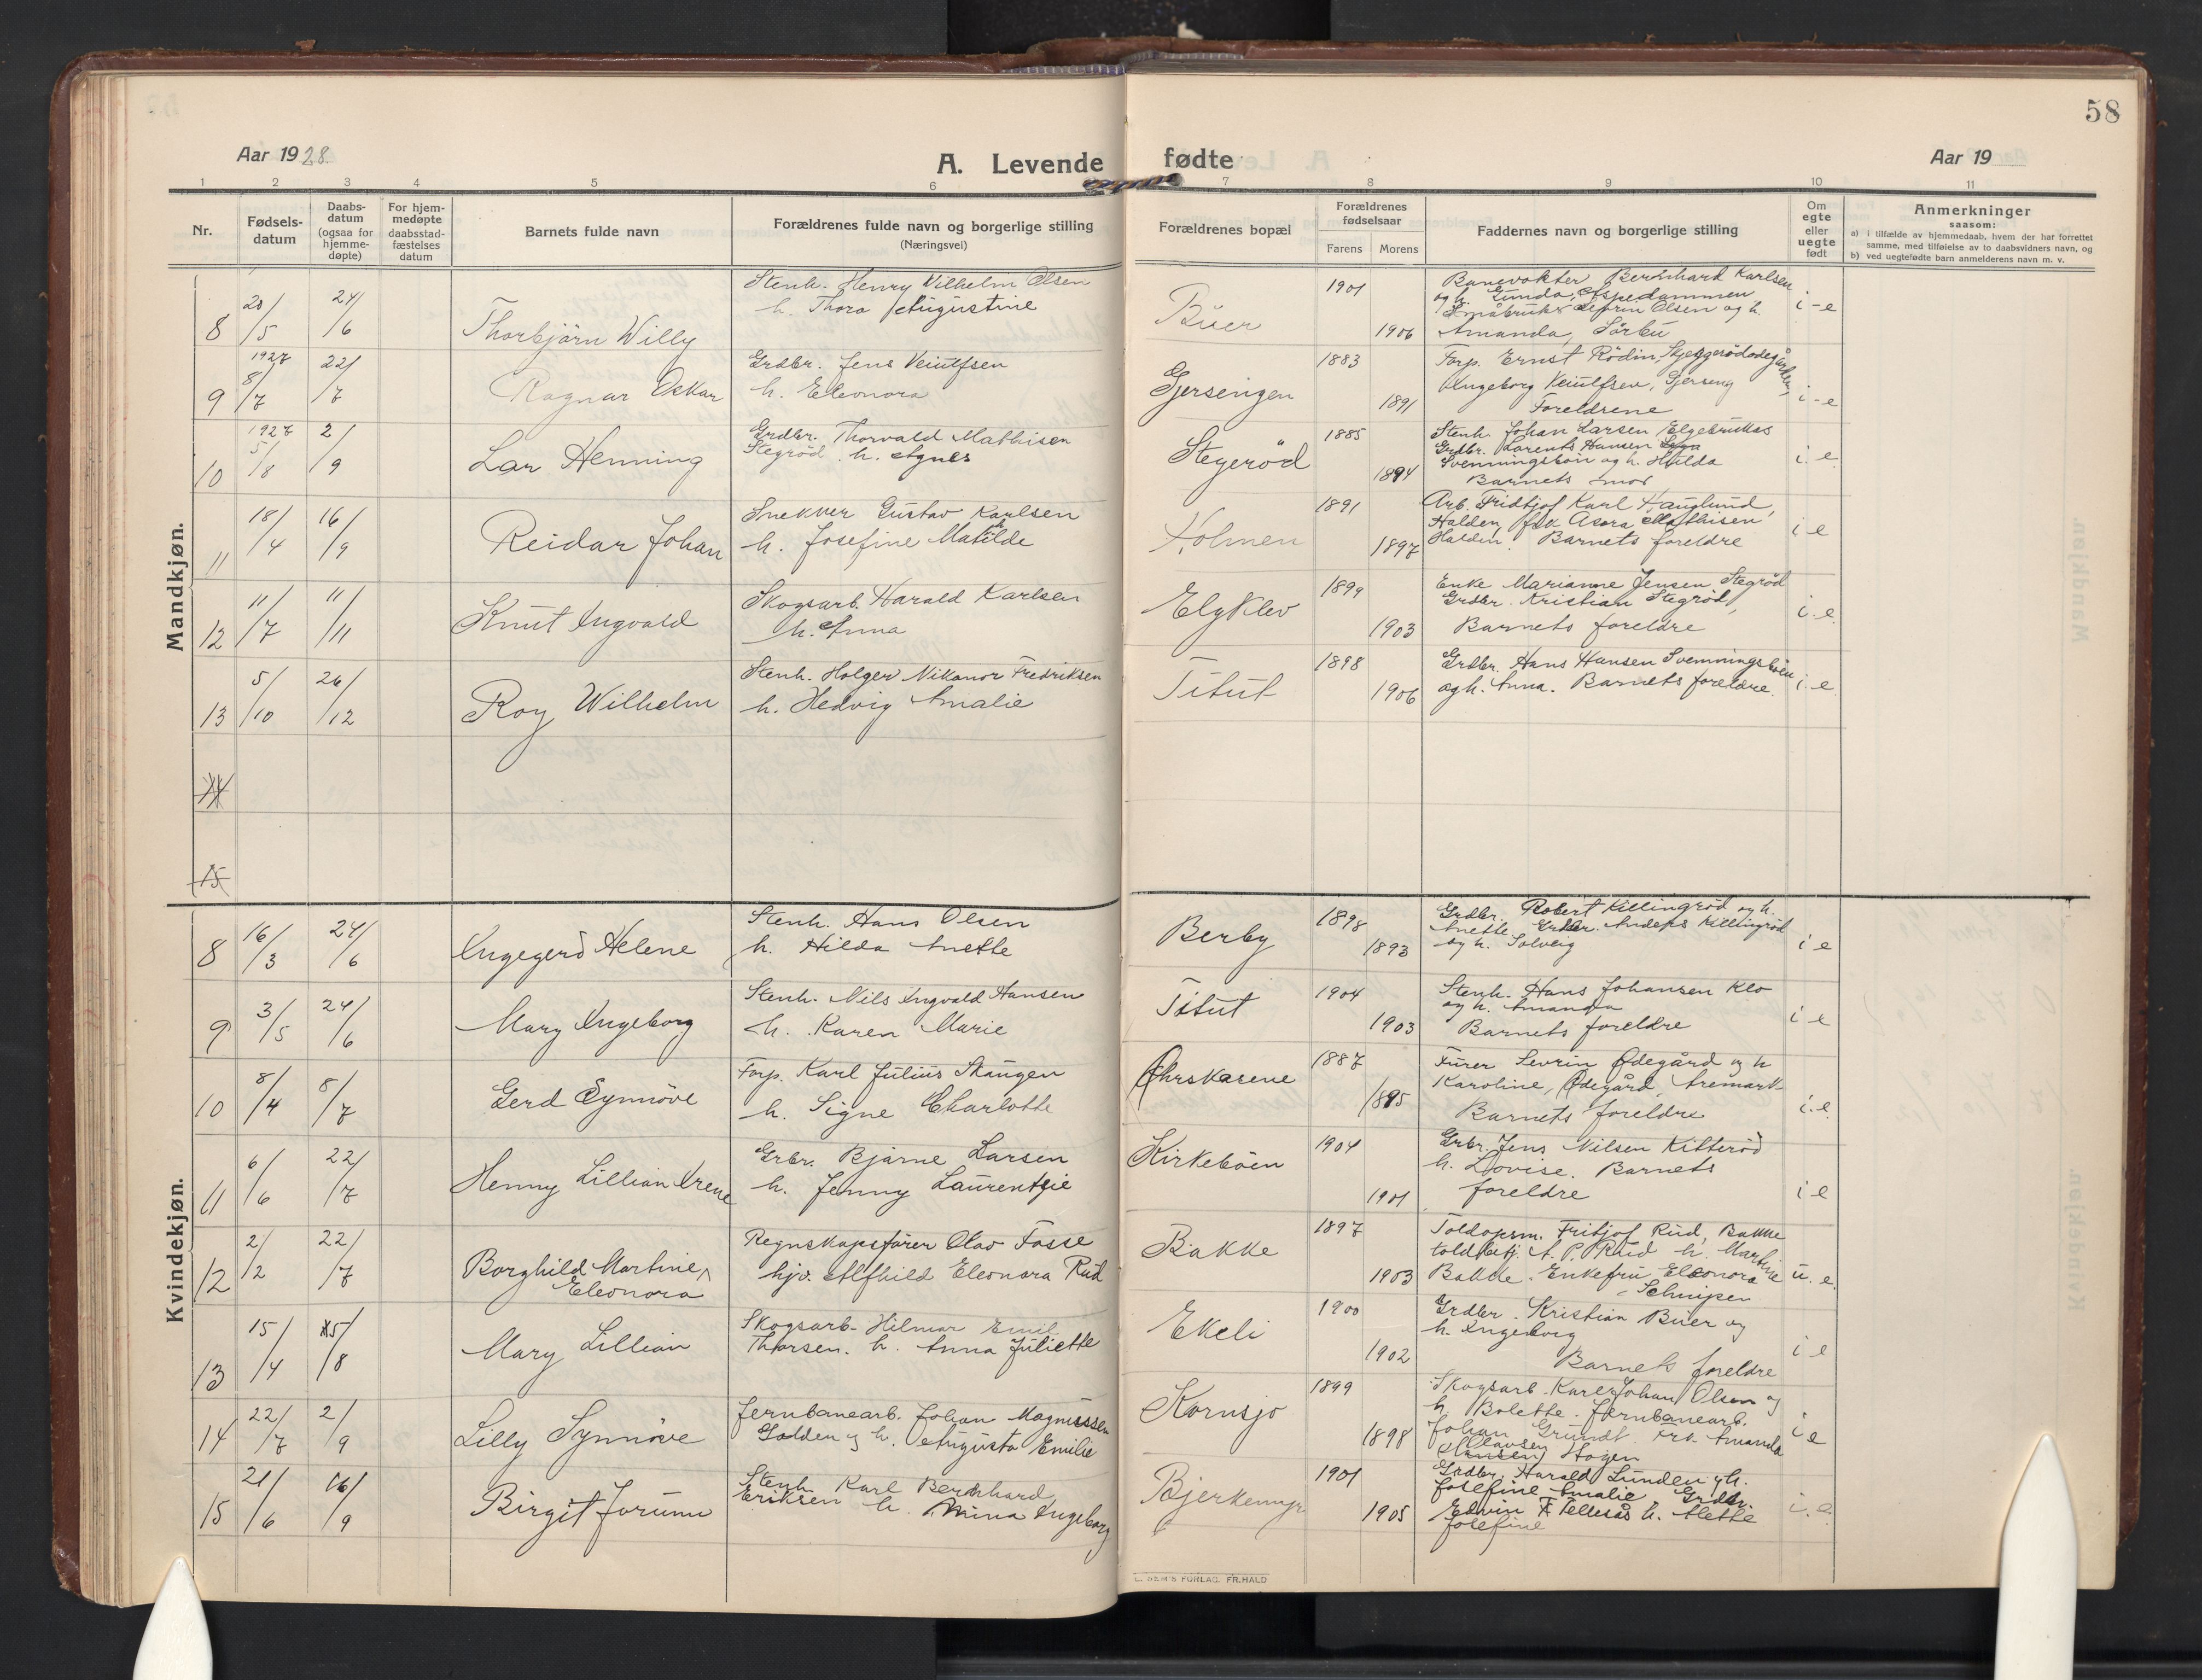 58
Aar 1928.
A. Levende fødte
Aar 19
1 2 3 4 5 6 7 8 9 10 11
Nr.
Fødsels-
datum
Daabs-
datum
(ogsaa for
hjemme-
døpte)
For hjem-
medøpte
daabsstad-
fæstelses
datum
Barnets fulde navn
Forældrenes fulde navn og borgerlige stilling
(Næringsvei)
Forældrenes bopæl
Forældrenes
fødselsaar
Farens Morens
Faddernes navn og borgerlige stilling
Om
egte
eller
uegte
født
Anmerkninger
saasom:
a) i tilfælde av hjemmedaab, hvem der har forrettet
samme, med tilføielse av to daabsvidners navn, og
b) ved uegtefødte barn anmelderens navn m. v.
Mandkjøn.
8 20/5 24/6 Thorbjörn Willy
Stenh. Henry Vilhelm Olsen
h. Thora Augustine
Buer 1901 1906
Banevokter Bernhard Karlsen
og h. Gunda, Aspedammen
Småbruker Sefrin Olsen og h.
Amanda, Sörbu
i-e
9 1927 8/7 22/7 Ragnar Oskar
Grdbr. Jens Veiulfsen
h. Eleonora
Gjersengen 1883 1891
Forp. Ernst Rödin, Skjeggerödødegården,
Ingeborg Veiulfsen, Gjerseng
Foreldrene
i-e
10 1927 5/8 2/9 Lar Henning
Grdbr. Thorvald Mathisen
Stegröd h. Agnes
Stegeröd 1885 1894
Stenh. Johan Larsen Elgebrukås
Grdbr. Lorents Hansen
Svenningsböin og h. Hulda
Barnets mor
i. e.
11 18/4 16/9 Reidar Johan
Snekker Gustav Karlsen
h. Josefine Mathilde
Holmen 1891 1897
Arb. Fridtjof Karl Hauglund,
Halden, frk Asora Mathisen
Halden. Barnets foreldre
i e
12 11/7 11/11 Knut Ingvald
Skogsarb. Harald Karlsen
h. Anna
Elgklev 1899 1903
Enke Marianne Jensen Stegröd
Grdbr. Kristian Stegröd,
Barnets foreldre
i. e.
13 5/10 26/12 Roy Wilhelm
Stenh. Holger Nikanor Fredriksen
h. Hedvig Amalie
Titut 1898 1906
Grdbr. Hans Hansen Svenningsböen
og h. Anna. Barnets foreldre.
i. e.
14
15
Kvindekjøn.
8 16/3 24/6 Ingegerd Helene
Stenh. Hans Olsen
h. Hilda Anette
Berby 1898 1893
Grdbr. Robert Killingröd og h.
Anette Grdbr. Anders Killingröd
og h. Solveig
i e
9 3/5 24/6 Mary Ingeborg
Stenh. Nils Ingvald Hansen
h. Karen Marie
Titut 1904 1903
Stenh. Hans Johansen Klo
og h. Amanda
Barnets foreldre
i e
10 8/4 8/7 Gerd Synnöve
Forp. Karl Julius Skaugen
h. Signe Charlotte
Ørskasene 1887 1895
Furer Sevrin Ødegård og h
Karoline, Ødegård, Aremark
Barnets foreldre
i. e.
11 6/6 22/7 Henny Lillian Irene
Grbr. Bjarne Larsen
h. Jenny Laurentzie
Kirkeböen 1904 1901
Grbr. Jens Nilsen Kitteröd
h. Lovise. Barnets
foreldre
i e
12 2/2 22/7 Borghild Martine,
Eleonora
Regnskapsförer Olav Fosse
hjv. Alfhild Eleonora Rud
Bakke 1897 1903
Toldopsm. Fritjof Rud, Bakke
toldbetj. A. P. Ruud h. Martine
Bakke. Enkefru Eleonora
u. e.
13 15/4 15/8 Mary Lillian
Skogsarb. Hilmar Emil
Thorsen. h. Anna Juliette
Ekeli 1900 1902
Grdbr. Kristian Buer og
h. Ingeborg
Barnets foreldre
i e
14 22/7 2/9 Lilly Synnöve
Jernbanearb. Johan Magnussen
Golden og h. Augusta Emilie
Kornsjo 1899 1898
Skogsarb. Karel Johan Olsen og
h. Bolette. Jernbanearb.
Johan Grundt. Frk. Amanda
Olavsen
Hogen
i e
15 21/6 16/9 Birgit Jorunn
Stenh. Karl Bernhard
Eriksen h. Mina Ingeborg
Bjerkemyr 1901 1905
Grdbr. Harald Lunden og h.
Josefine Amalie Grdbr.
Edvin F. Tellesås h. Alette
Josefine
i. e.
E. SEM'S FORLAG. FR.HALD